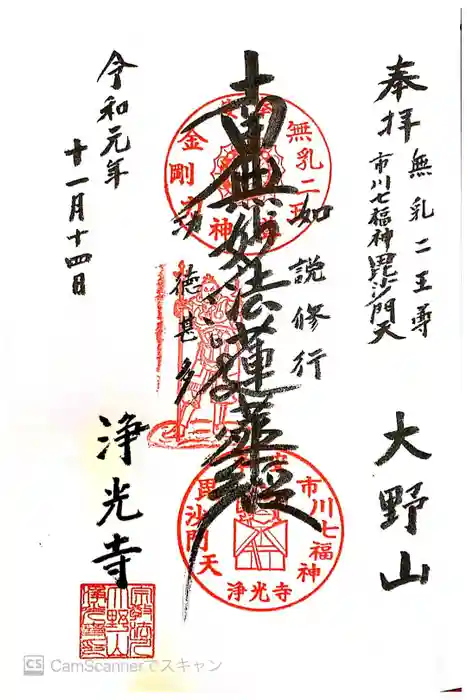 奉拝 無乳二王尊
市川七福神毘沙門天
大野山
如説修行
南無妙法蓮華経
功徳甚多
令和元年
十一月十四日
浄光寺
無乳二王尊
金剛
神
市川七福神
毘沙門天
浄光寺
CS CamScannerでスキャン